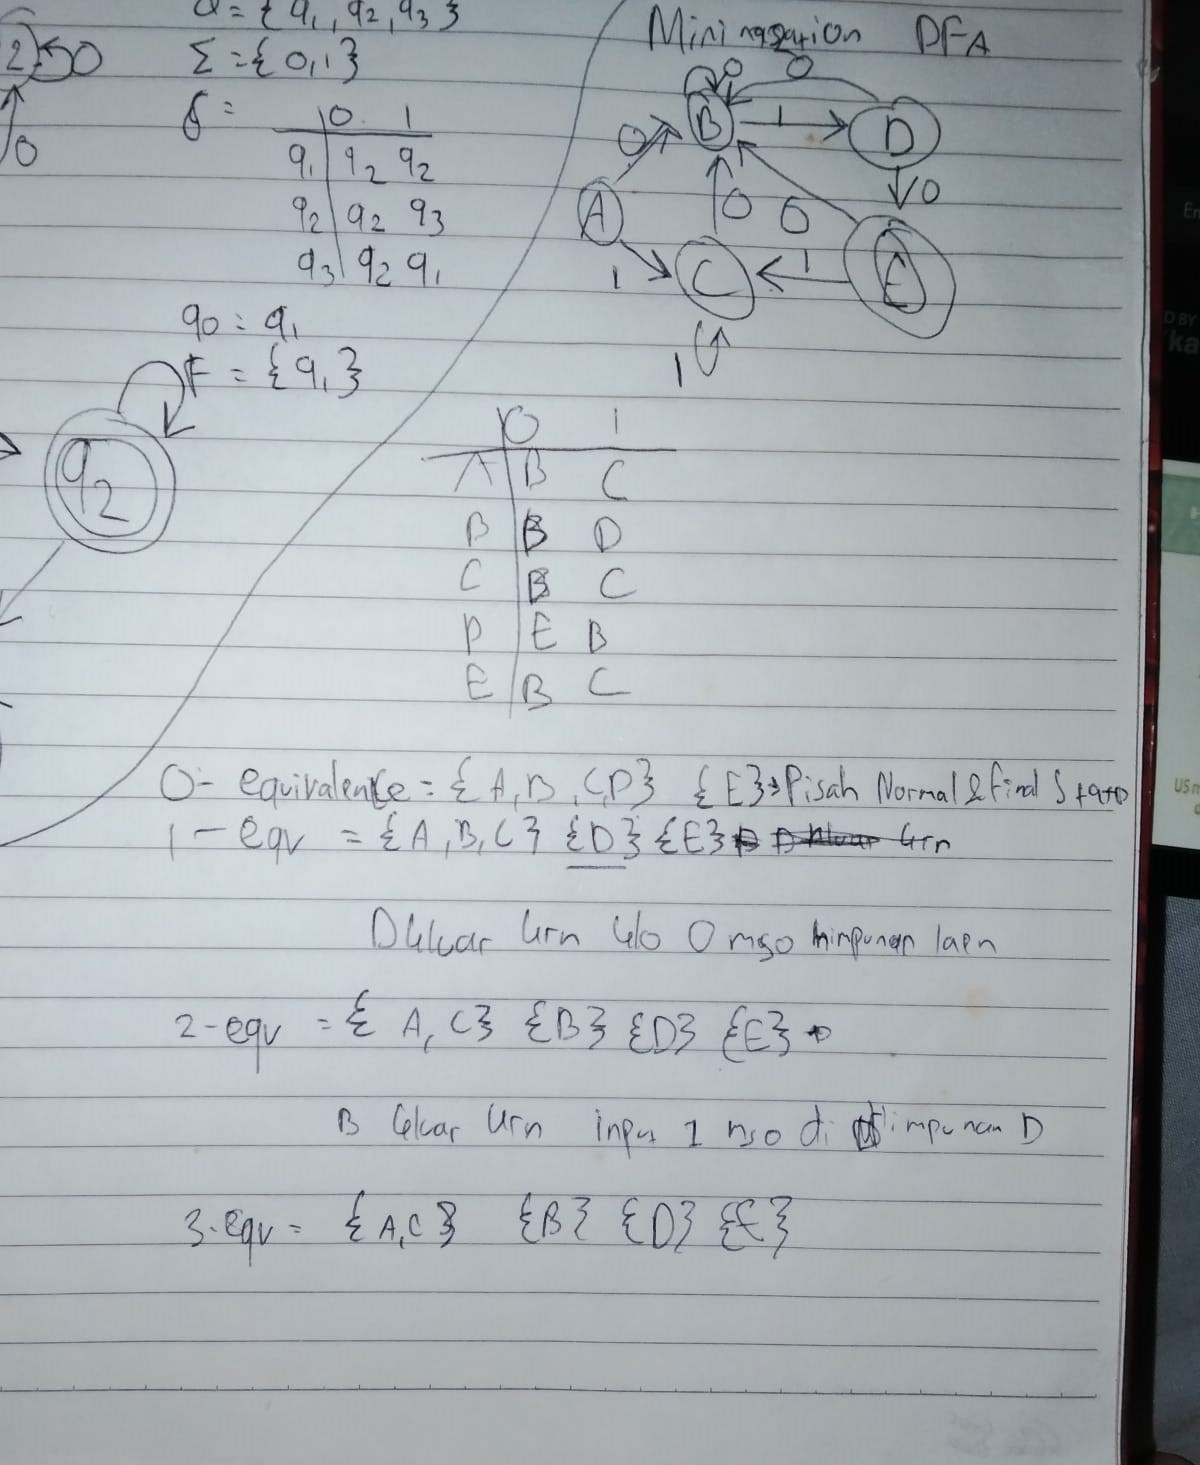 Q = { q1, q2, q3 }
Σ = { 0, 1 }
δ =
0 1
q1 q2 q2
q2 q2 q3
q3 q2 q1
q0 = q1
F = { q1 }
2 0
0
q2
DFA
0 0
B 1 D
0 0
A 0 0
1 C 1 E
1
0 1
A B C
B B D
C B C
D E B
E B C
0 - equivalence = { A, B, C, D } { E } → Pisah Normal & Final State
1 - eqv = { A, B, C } { D } { E } krn
D keluar krn klo 0 mso himpunan laen
2 - eqv = { A, C } { B } { D } { E } →
B keluar krn input 1 nso di himpunan D
3 - eqv = { A, C } { B } { D } { E }